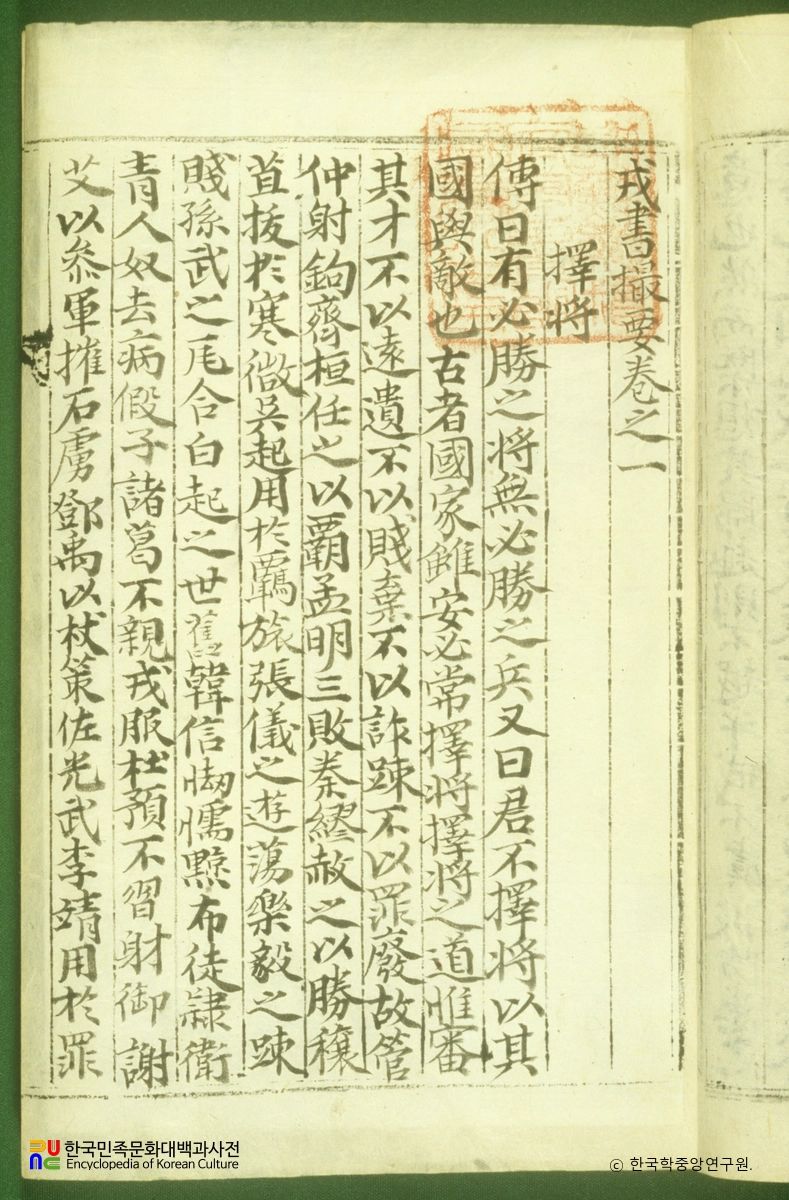 戎書撮要卷之一
擇將
傳曰有必勝之將無必勝之兵又曰君不擇將以其
國與敵也古者國家雖安必常擇將擇將之道惟審
其才不以遠遺不以賤棄不以詐踈不以罪廢故管
仲射鉤齊桓任之以覇孟明三敗秦繆赦之以勝穰
苴拔於寒微吳起用於羈旅張儀之遊蕩樂毅之踈
賤孫武之瓦合白起之世舊韓信㤼懦黥布徒隷衛
青人奴去病假子諸葛不親戎服杜預不習射御謝
艾以叅軍摧石虜鄧禹以杖策佐光武李靖用於罪
한국민족문화대백과사전
Encyclopedia of Korean Culture
© 한국학중앙연구원.